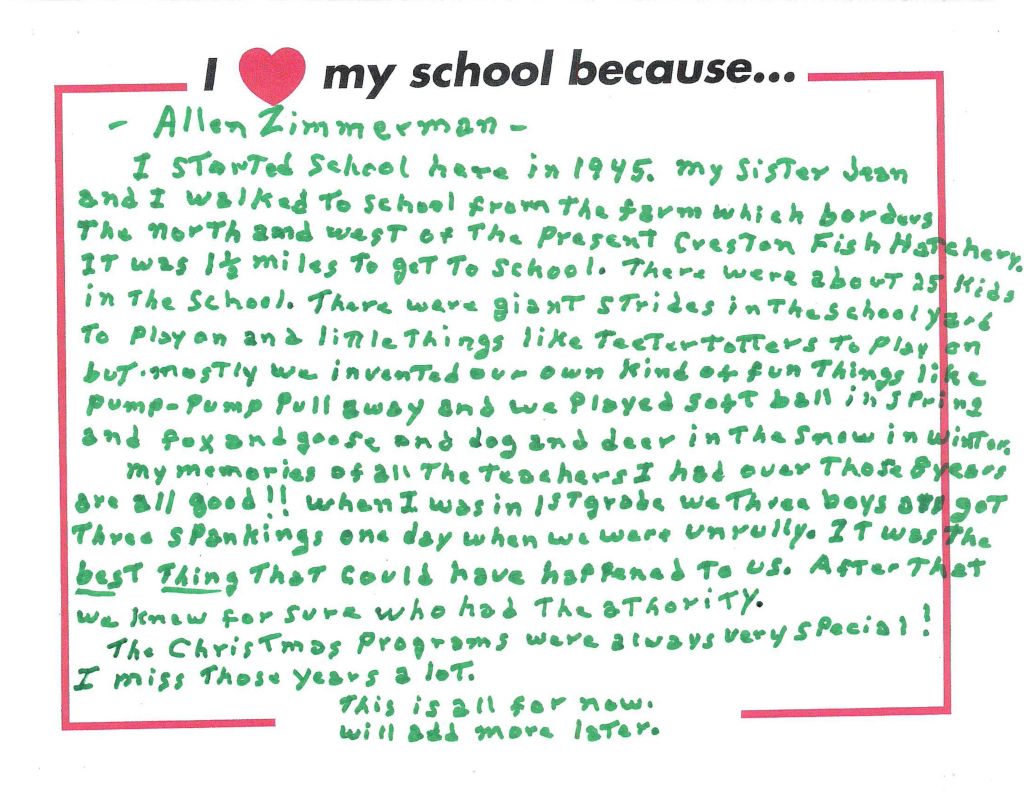 I ♥ my school because...
- Allen Zimmerman -
I started school here in 1945. my sister Jean
and I walked to school from the farm which borders
the north and west of the present Creston Fish Hatchery.
It was 1½ miles to get to school. There were about 25 kids
in the school. There were giant strides in the school yard
to play on and little things like teetertotters to play on
but mostly we invented our own kind of fun things like
pump-pump pull away and we played soft ball in spring
and fox and goose and dog and deer in the snow in winter.
my memories of all the teachers I had over those 8 years
are all good!! when I was in 1st grade we three boys all got
three spankings one day when we were unrully. It was the
best thing that could have happened to us. After that
we knew for sure who had the athority.
The Christmas programs were always very special!
I miss those years a lot.
This is all for now.
will add more later.